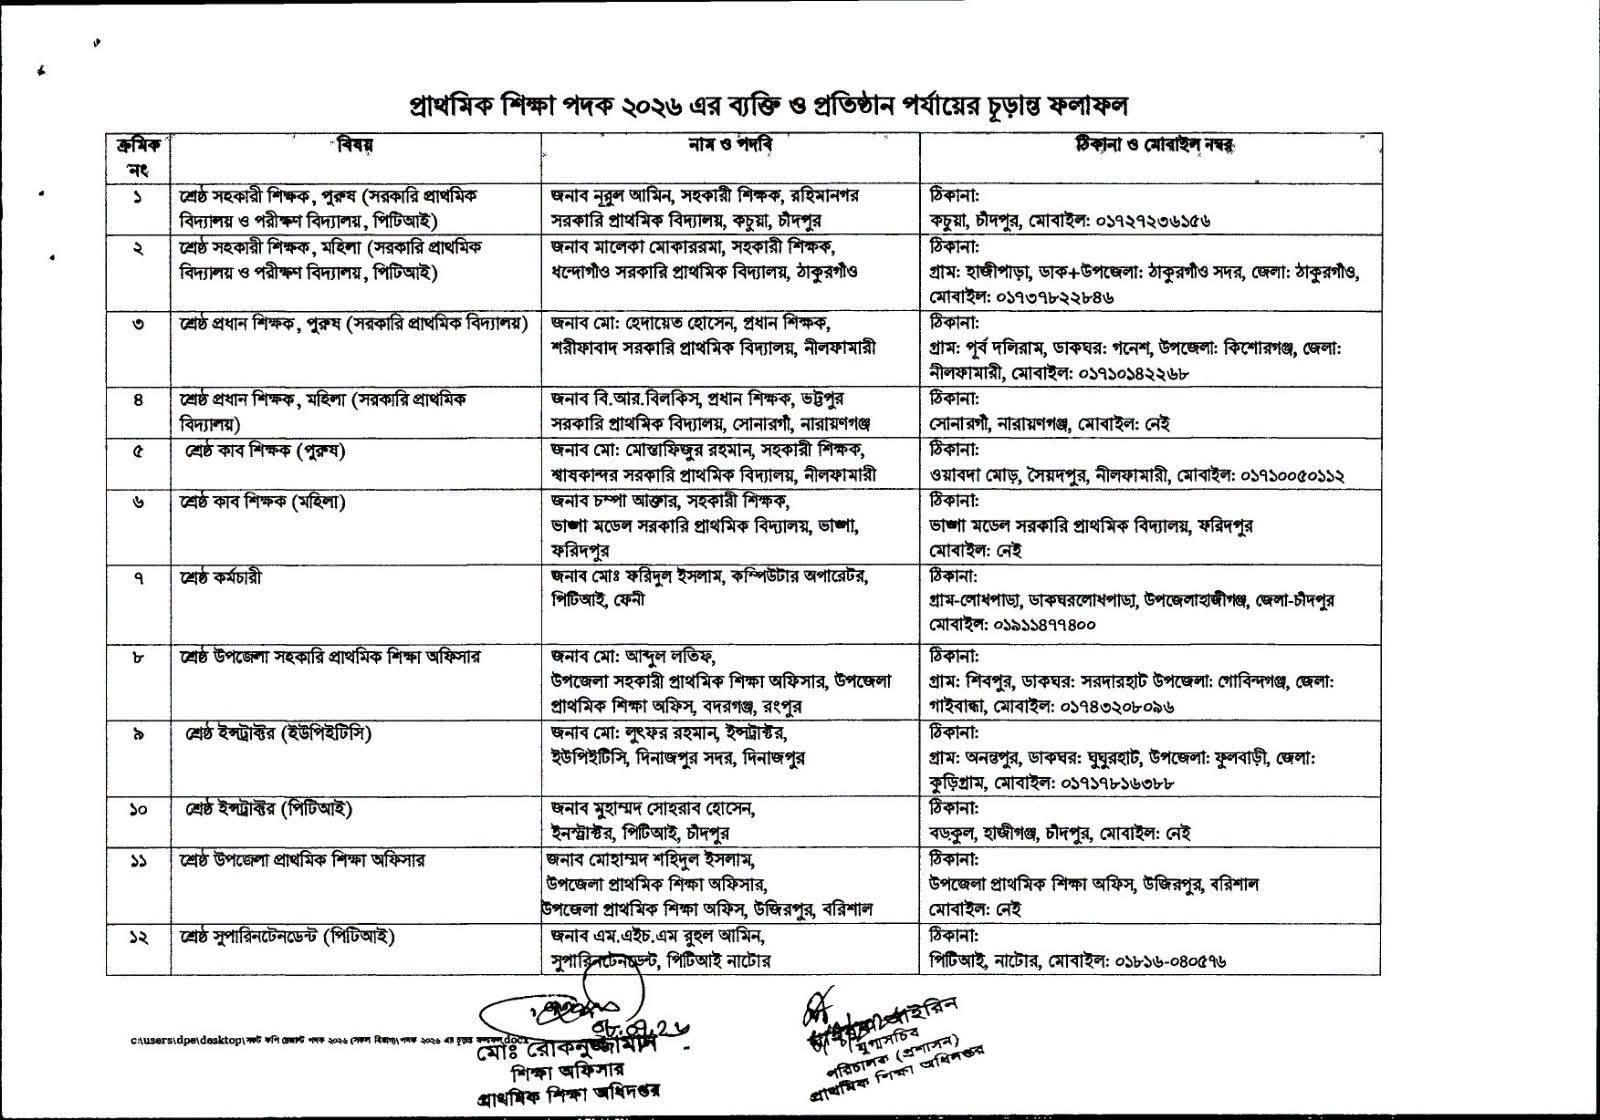 প্রাথমিক শিক্ষা পদক ২০২৬ এর ব্যক্তি ও প্রতিষ্ঠান পর্যায়ের চূড়ান্ত ফলাফল
ক্রমিক নং
বিষয়
নাম ও পদবি
ঠিকানা ও মোবাইল নম্বর
১
শ্রেষ্ঠ সহকারী শিক্ষক, পুরুষ (সরকারি প্রাথমিক
বিদ্যালয় ও পরীক্ষণ বিদ্যালয়, পিটিআই)
জনাব নূরুল আমিন, সহকারী শিক্ষক, রহিমানগর
সরকারি প্রাথমিক বিদ্যালয়, কচুয়া, চাঁদপুর
ঠিকানা:
কচুয়া, চাঁদপুর, মোবাইল: ০১৭২৭২৩৬১৫৬
২
শ্রেষ্ঠ সহকারী শিক্ষক, মহিলা (সরকারি প্রাথমিক
বিদ্যালয় ও পরীক্ষণ বিদ্যালয়, পিটিআই)
জনাব মালেকা মোকাররমা, সহকারী শিক্ষক,
ধন্দোগাঁও সরকারি প্রাথমিক বিদ্যালয়, ঠাকুরগাঁও
ঠিকানা:
গ্রাম: হাজীপাড়া, ডাক+উপজেলা: ঠাকুরগাঁও সদর, জেলা: ঠাকুরগাঁও,
মোবাইল: ০১৭৩৭৮২২৮৪৬
৩
শ্রেষ্ঠ প্রধান শিক্ষক, পুরুষ (সরকারি প্রাথমিক বিদ্যালয়)
জনাব মো: হেদায়েত হোসেন, প্রধান শিক্ষক,
শরীফাবাদ সরকারি প্রাথমিক বিদ্যালয়, নীলফামারী
ঠিকানা:
গ্রাম: পূর্ব দলিরাম, ডাকঘর: গনেশ, উপজেলা: কিশোরগঞ্জ, জেলা:
নীলফামারী, মোবাইল: ০১৭১০১৪২২৬৮
৪
শ্রেষ্ঠ প্রধান শিক্ষক, মহিলা (সরকারি প্রাথমিক
বিদ্যালয়)
জনাব বি.আর.বিলকিস, প্রধান শিক্ষক, ভট্টপুর
সরকারি প্রাথমিক বিদ্যালয়, সোনারগাঁ, নারায়ণগঞ্জ
ঠিকানা:
সোনারগাঁ, নারায়ণগঞ্জ, মোবাইল: নেই
৫
শ্রেষ্ঠ কাব শিক্ষক (পুরুষ)
জনাব মো: মোস্তাফিজুর রহমান, সহকারী শিক্ষক,
শ্বাষকান্দর সরকারি প্রাথমিক বিদ্যালয়, নীলফামারী
ঠিকানা:
ওয়াবদা মোড়, সৈয়দপুর, নীলফামারী, মোবাইল: ০১৭১০০৫০১১২
৬
শ্রেষ্ঠ কাব শিক্ষক (মহিলা)
জনাব চম্পা আক্তার, সহকারী শিক্ষক,
ভাঙ্গা মডেল সরকারি প্রাথমিক বিদ্যালয়, ভাঙ্গা,
ফরিদপুর
ঠিকানা:
ভাঙ্গা মডেল সরকারি প্রাথমিক বিদ্যালয়, ফরিদপুর
মোবাইল: নেই
৭
শ্রেষ্ঠ কর্মচারী
জনাব মোঃ ফরিদুল ইসলাম, কম্পিউটার অপারেটর,
পিটিআই, ফেনী
ঠিকানা:
গ্রাম-লোধপাড়া, ডাকঘরলোধপাড়া, উপজেলাহাজীগঞ্জ, জেলা-চাঁদপুর
মোবাইল: ০১৯১১৪৭৭৪০০
৮
শ্রেষ্ঠ উপজেলা সহকারি প্রাথমিক শিক্ষা অফিসার
জনাব মো: আব্দুল লতিফ,
উপজেলা সহকারী প্রাথমিক শিক্ষা অফিসার, উপজেলা
প্রাথমিক শিক্ষা অফিস, বদরগঞ্জ, রংপুর
ঠিকানা:
গ্রাম: শিবপুর, ডাকঘর: সরদারহাট উপজেলা: গোবিন্দগঞ্জ, জেলা:
গাইবান্ধা, মোবাইল: ০১৭৪৩২০৮০৯৬
৯
শ্রেষ্ঠ ইন্সট্রাক্টর (ইউপিইটিসি)
জনাব মো: লুৎফর রহমান, ইন্সট্রাক্টর,
ইউপিইটিসি, দিনাজপুর সদর, দিনাজপুর
ঠিকানা:
গ্রাম: অনন্তপুর, ডাকঘর: ঘুঘুরহাট, উপজেলা: ফুলবাড়ী, জেলা:
কুড়িগ্রাম, মোবাইল: ০১৭১৭৮১৬৩৮৮
১০
শ্রেষ্ঠ ইন্সট্রাক্টর (পিটিআই)
জনাব মুহাম্মদ সোহরাব হোসেন,
ইনস্ট্রাক্টর, পিটিআই, চাঁদপুর
ঠিকানা:
বড়কুল, হাজীগঞ্জ, চাঁদপুর, মোবাইল: নেই
১১
শ্রেষ্ঠ উপজেলা প্রাথমিক শিক্ষা অফিসার
জনাব মোহাম্মদ শহিদুল ইসলাম,
উপজেলা প্রাথমিক শিক্ষা অফিসার,
উপজেলা প্রাথমিক শিক্ষা অফিস, উজিরপুর, বরিশাল
ঠিকানা:
উপজেলা প্রাথমিক শিক্ষা অফিস, উজিরপুর, বরিশাল
মোবাইল: নেই
১২
শ্রেষ্ঠ সুপারিনটেনডেন্ট (পিটিআই)
জনাব এম.এইচ.এম রুহুল আমিন,
সুপারিনটেনডেন্ট, পিটিআই নাটোর
ঠিকানা:
পিটিআই, নাটোর, মোবাইল: ০১৮১৬-০৪০৫৭৬
০৮.০৭.২৬
c:\users\dpe\desktop\
মোঃ রোকনুজ্জামান
শিক্ষা অফিসার
প্রাথমিক শিক্ষা অধিদপ্তর
আইরিন
যুগ্মসচিব
পরিচালক (প্রশাসন)
প্রাথমিক শিক্ষা অধিদপ্তর